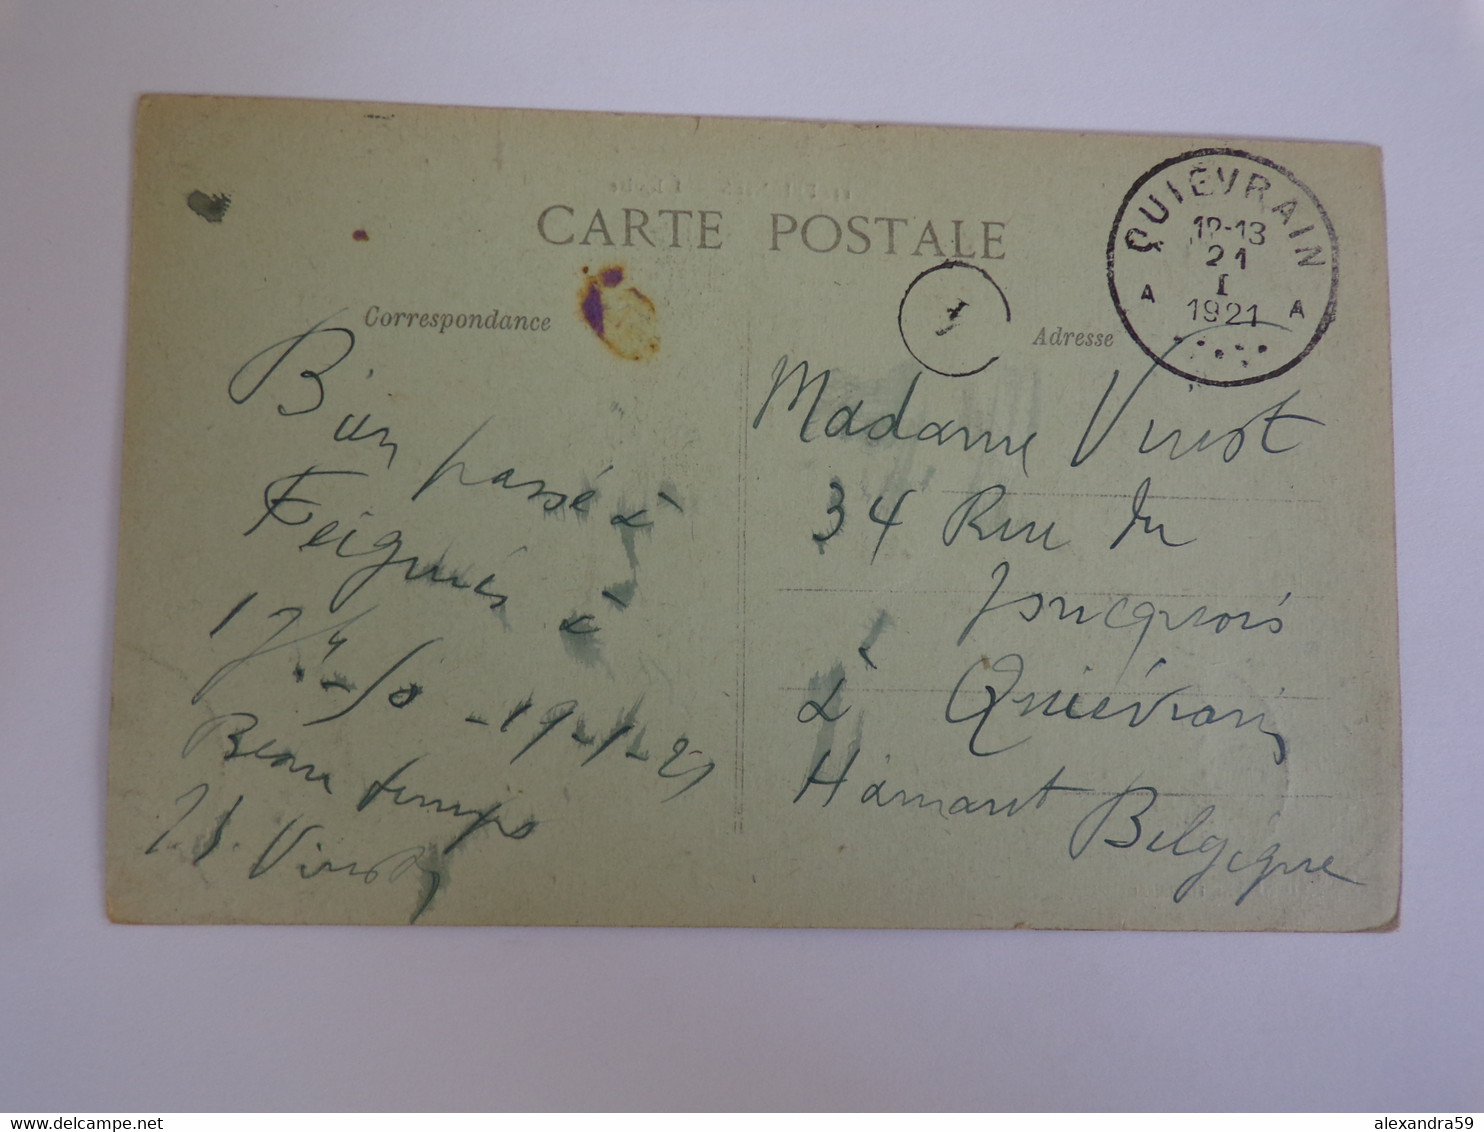 CARTE POSTALE
Correspondance
Adresse
QUIÉVRAIN
12-13
21
I
1921
A A
1
Bien passé à
Feignies à
17h
-19-1-21
Beau temps
Virost
Madame Virost
34 Rue du
Joncquois
à Quiévrain
Hainaut
Belgique
www.delcampe.net
alexandra59